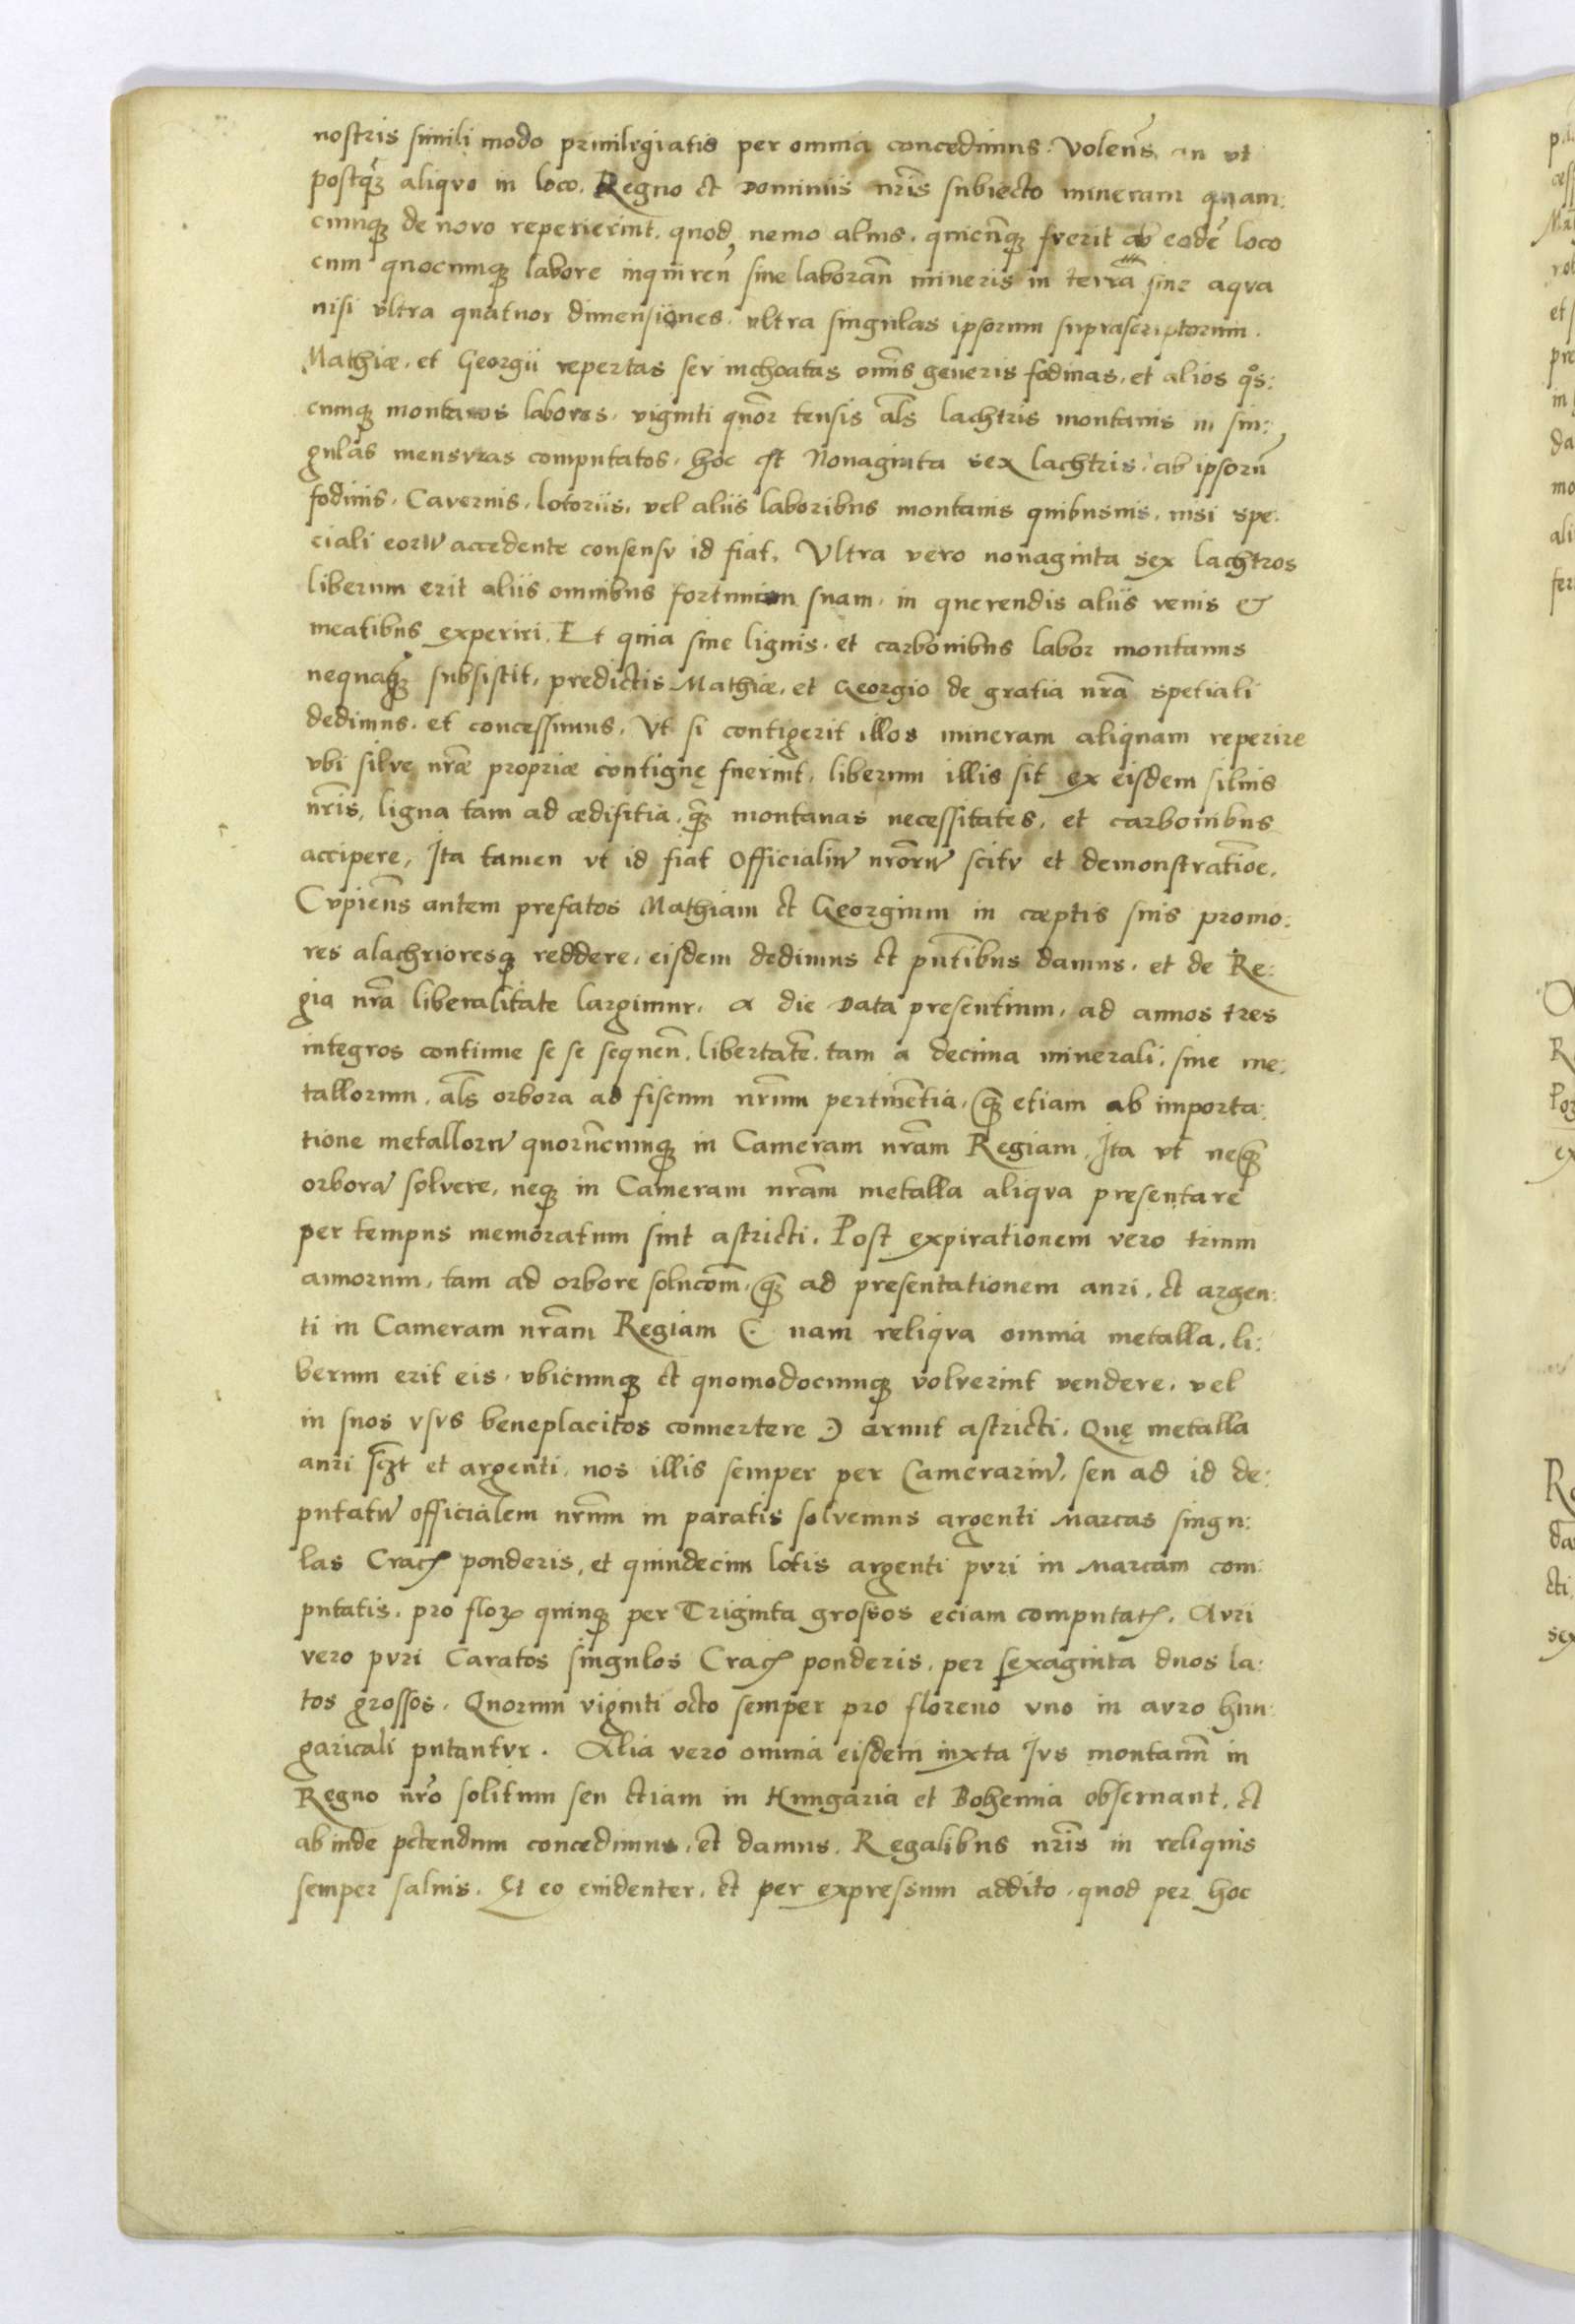 nostris simili modo priuilegiatis per omnia concedimus. Volen̄s an vt
postq̃ aliqvo in loco, Regno et Dominiis nr̄is subiecto mineram quam:
cunq̃ de novo reperierint. quod nemo alius. quicūnq̃ fverit ab eodē loco
cum quocunq̃ labore inquiren̄ siue laboran̄ mineris in terrā siue aqva
nisi vltra quatuor dimensiones. vltra singulas ipsorum suprascriptorum.
Mathiæ. et Georgii repertas sev inchoatas omn̄is generis fodinas, et alios qōs:
cunq̃ montanos labores. viginti qnōr tensis al̄s lachtris montanis in sin:
gulas mensvras computatos. hoc est Nonaginta sex lachtris. ab ipsorū
fodinis. Cavernis. lotoriis. vel aliis laboribus montanis quibusuis. nisi spe:
ciali eorū accedente consensv id fiat. Vltra vero nonaginta sex lachtros
liberum erit aliis omnibus fortunam suam. in querendis aliis venis &
meatibus experiri. Et quia sine lignis. et carbonibus labor montanus
nequaq̃ subsistit, predictis Mathiæ. et Georgio de gratia nr̄a spetiali
dedimus. et concessimus. Vt si contigerit illos mineram aliquam reperire
vbi silve nr̄æ propriæ contiguę fuerint, liberum illis sit ex eisdem siluis
nr̄is, ligna tam ad ædifitia. q̃ montanas necessitates, et carbonibus
accipere, Ita tamen vt id fiat Officialiū nrōrū scitv et demonstratiōe.
Cvpien̄s autem prefatos Mathiam et Georgium in cœptis suis promo:
res alachrioresq̃ reddere, eisdem dedimus et pn̄tibus damus. et de Re:
gia nr̄a liberalitate largimur. a die Data presentium, ad annos tres
integros continue se se sequen̄. libertatē. tam a decima minerali. siue me:
tallorum. al̄s orbora ad fiscum nr̄um pertinēntia, q̃ etiam ab importa:
tione metallorū quorūncunq̃ in Cameram nr̄am Regiam. Ita vt neq̃
orborā solvere, neq̃ in Cameram nr̄am metalla aliqva presentare
per tempus memoratum sint astricti. Post expirationem vero trium
annorum, tam ad orbore solucōm̄, q̃ ad presentationem auri. et argen:
ti in Cameram nr̄am Regiam (. nam reliqva omnia metalla. li:
berum erit eis. vbicunq̃ et quomodocunq̃ volverint vendere. vel
in suos vsvs beneplacitos conuertere .) erunt astricti. Quę metalla
auri sc̃t et argenti. nos illis semper per Camerariū. seu ad id de:
putatū officialem nr̄um in paratis solvemus argenti Marcas singu:
las Crac̃ ponderis, et quindecim lotis argenti pvri in Marcam com:
putatis. pro flor̃ quinq̃ per Triginta grossos eciam computat̃. Avri
vero pvri Caratos singulos Crac̃ ponderis. per sexaginta duos la:
tos grossos. Quorum viginti octo semper pro floreno vno in avro hun:
garicali putantvr. Alia vero omnia eisdem iuxta Jvs montanū in
Regno nr̄o solitum seu etiam in Hungaria et Bohemia obseruant. et
ab inde petendum concedimus. et damus. Regalibus nr̄is in reliquis
semper saluis. Et eo euidenter. et per expressum addito. quod per hoc